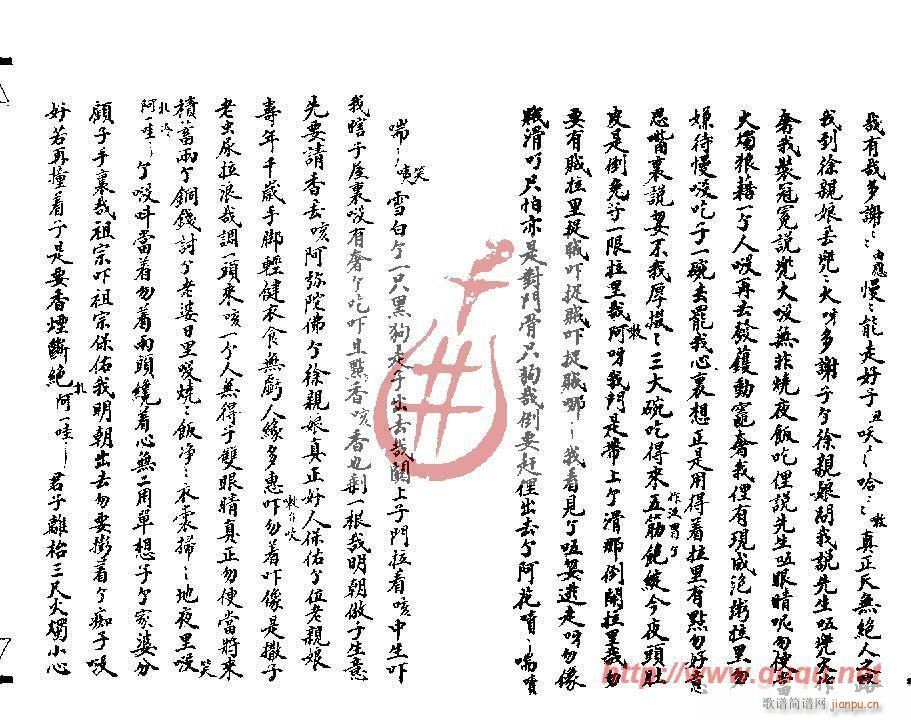 哉有哉多謝〻內應慢〻能走好子丑咲〻哈〻敕真正天無絕人之路
我到徐親娘丢兜〻大呀多謝子个徐親娘閙我說先生𠲎兜大
奢我裝冠冕說兜大哎無非燒夜飯吃俚說先生𠲎眼睛呢勿便當
火燭狼藉一个人哎再去發鑊動竈奢我俚有現成泡粥拉里勿
嫌待慢哎吃子一碗去罷我心裏想正是用得着拉里有點勿好意
思嘴裏說㜽不我厚㩳〻三大碗吃得來五筋飽綻今夜頭肚
皮是倒免子一限拉里哉阿呀我門是帶上个滑那倒開拉里
要有賊拉里捉賊吓捉賊吓捉賊哪〻我看見个𠲎㜽逃走呀勿像
賊滑吖只怕亦是對門骨只狗哉倒要赶俚出去个阿花嘖〻喘嘖
喘〻嘖笑雪白个一只黑狗走子出去哉關上子門拉看咳中生吓
我瞎子屋裏哎有奢个吃吓且點香咳香也剩一根哉明朝做子生意
先要請香丢咳阿弥陀佛个徐親娘真正好人保佑个位老親娘
壽年千歲手脚輕健衣食無虧人緣多惠吓勿着吓像是撒子
老虫尿拉浪哉調一頭來咳一个人無得子雙眼睛真正勿便當將來
積蓄兩个銅錢討个老婆日里哎燒〻飯净〻衣裳掃〻地夜里哎笑
阿一哇〻个哎吽當着勿着兩頭纔着心無二用單想子个家婆分
顧子手裏哉祖宗吓祖宗保佑我明朝出去勿要撞着个痴子哎
好若再撞着子是要香煙斷絕扎阿一哇〻君子離枱三尺火燭小心
http://www.guqu.net
歌谱简谱网
jianpu.cn